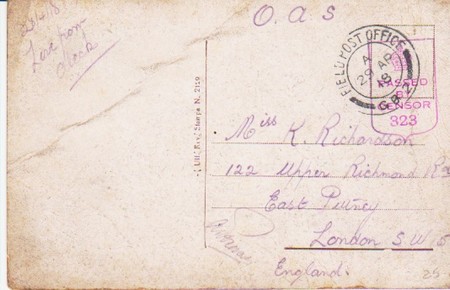 Love from
Jack
O. a S
FIELD POST OFFICE
A
29 AP
18
G.B.2
PASSED
BY
CENSOR
323
Miss K. Richardson
122 Upper Richmond Rd
East Putney
London S W 15
England.